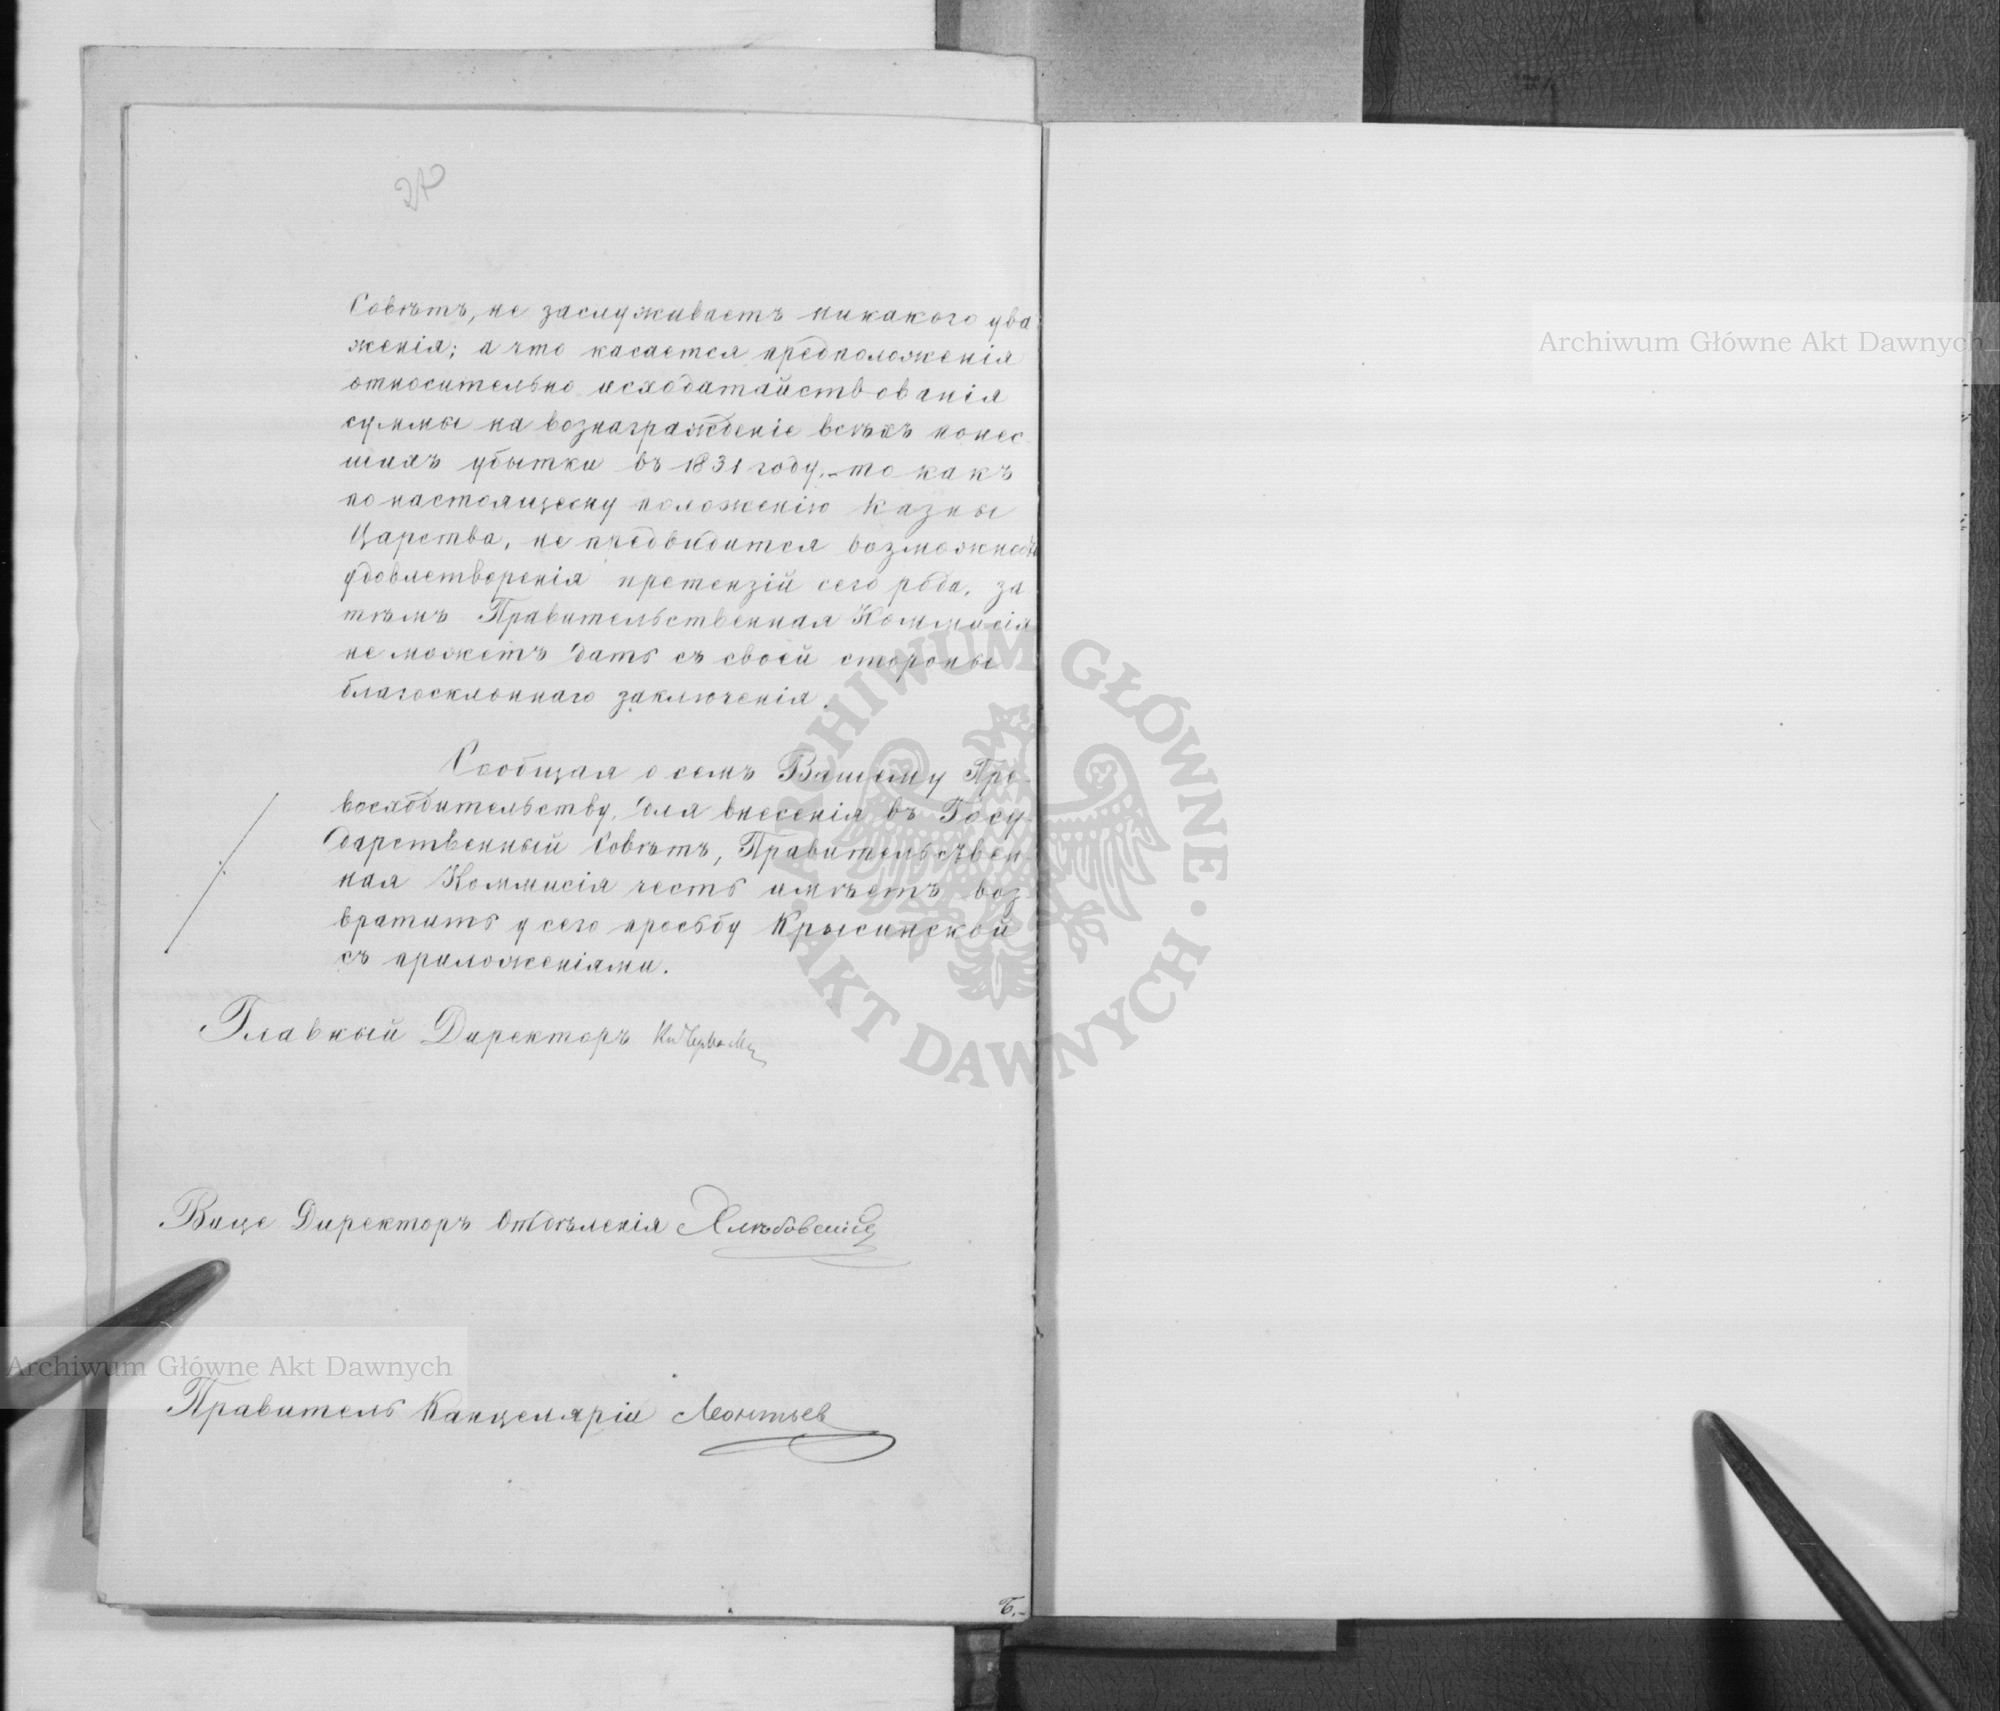 Совѣтъ, не заслуживаетъ никакого ува
женія; а что касается предположенія
относительно исходатайствованія
суммы на вознагражденіе всѣхъ понес-
шихъ убытки въ 1831 году, то какъ
по настоящему положенію Казны
Царства, не предвидится возможность
удовлетворенія претензій сего рода, за
тѣмъ Правительственная Коммисія
не можетъ дать съ своей стороны
благосклоннаго заключенія.
Сообщая о семъ Вашему Пре-
восходительству, для внесенія въ Госу-
дарственный Совѣтъ, Правительствен-
ная Коммисія честь имѣетъ воз-
вратить у сего просьбу Крысинской
съ приложеніями.
Главный Директоръ
Вице Директоръ Отдѣленія
Правитель Канцеляріи Леонтьев
Б.-
Archiwum Główne Akt Dawnych
Archiwum Główne Akt Dawnych
ARCHIWUM GŁÓWNE
AKT DAWNYCH